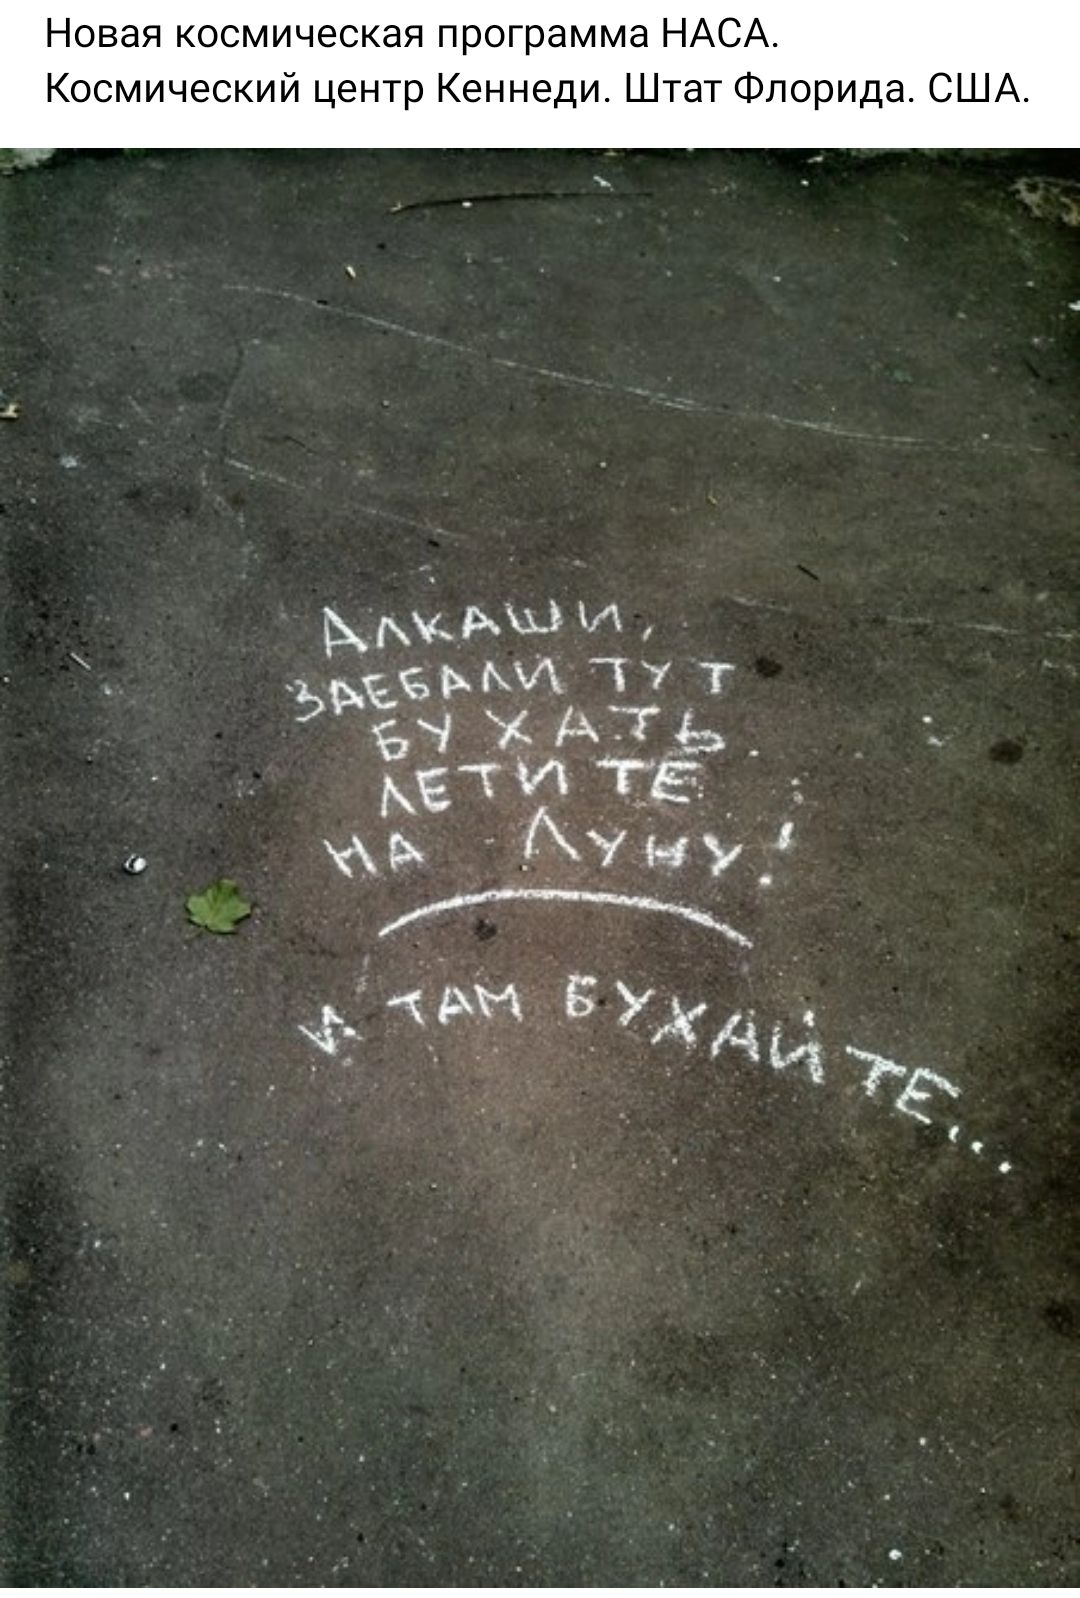 Новая космическая программа НАСА.
Космический центр Кеннеди. Штат Флорида. США.
АЛКАШИ,
ЗАЕБАЛИ ТУТ
БУХАТЬ
ЛЕТИТЕ
НА ЛУНУ!
И ТАМ БУХАЙТЕ...